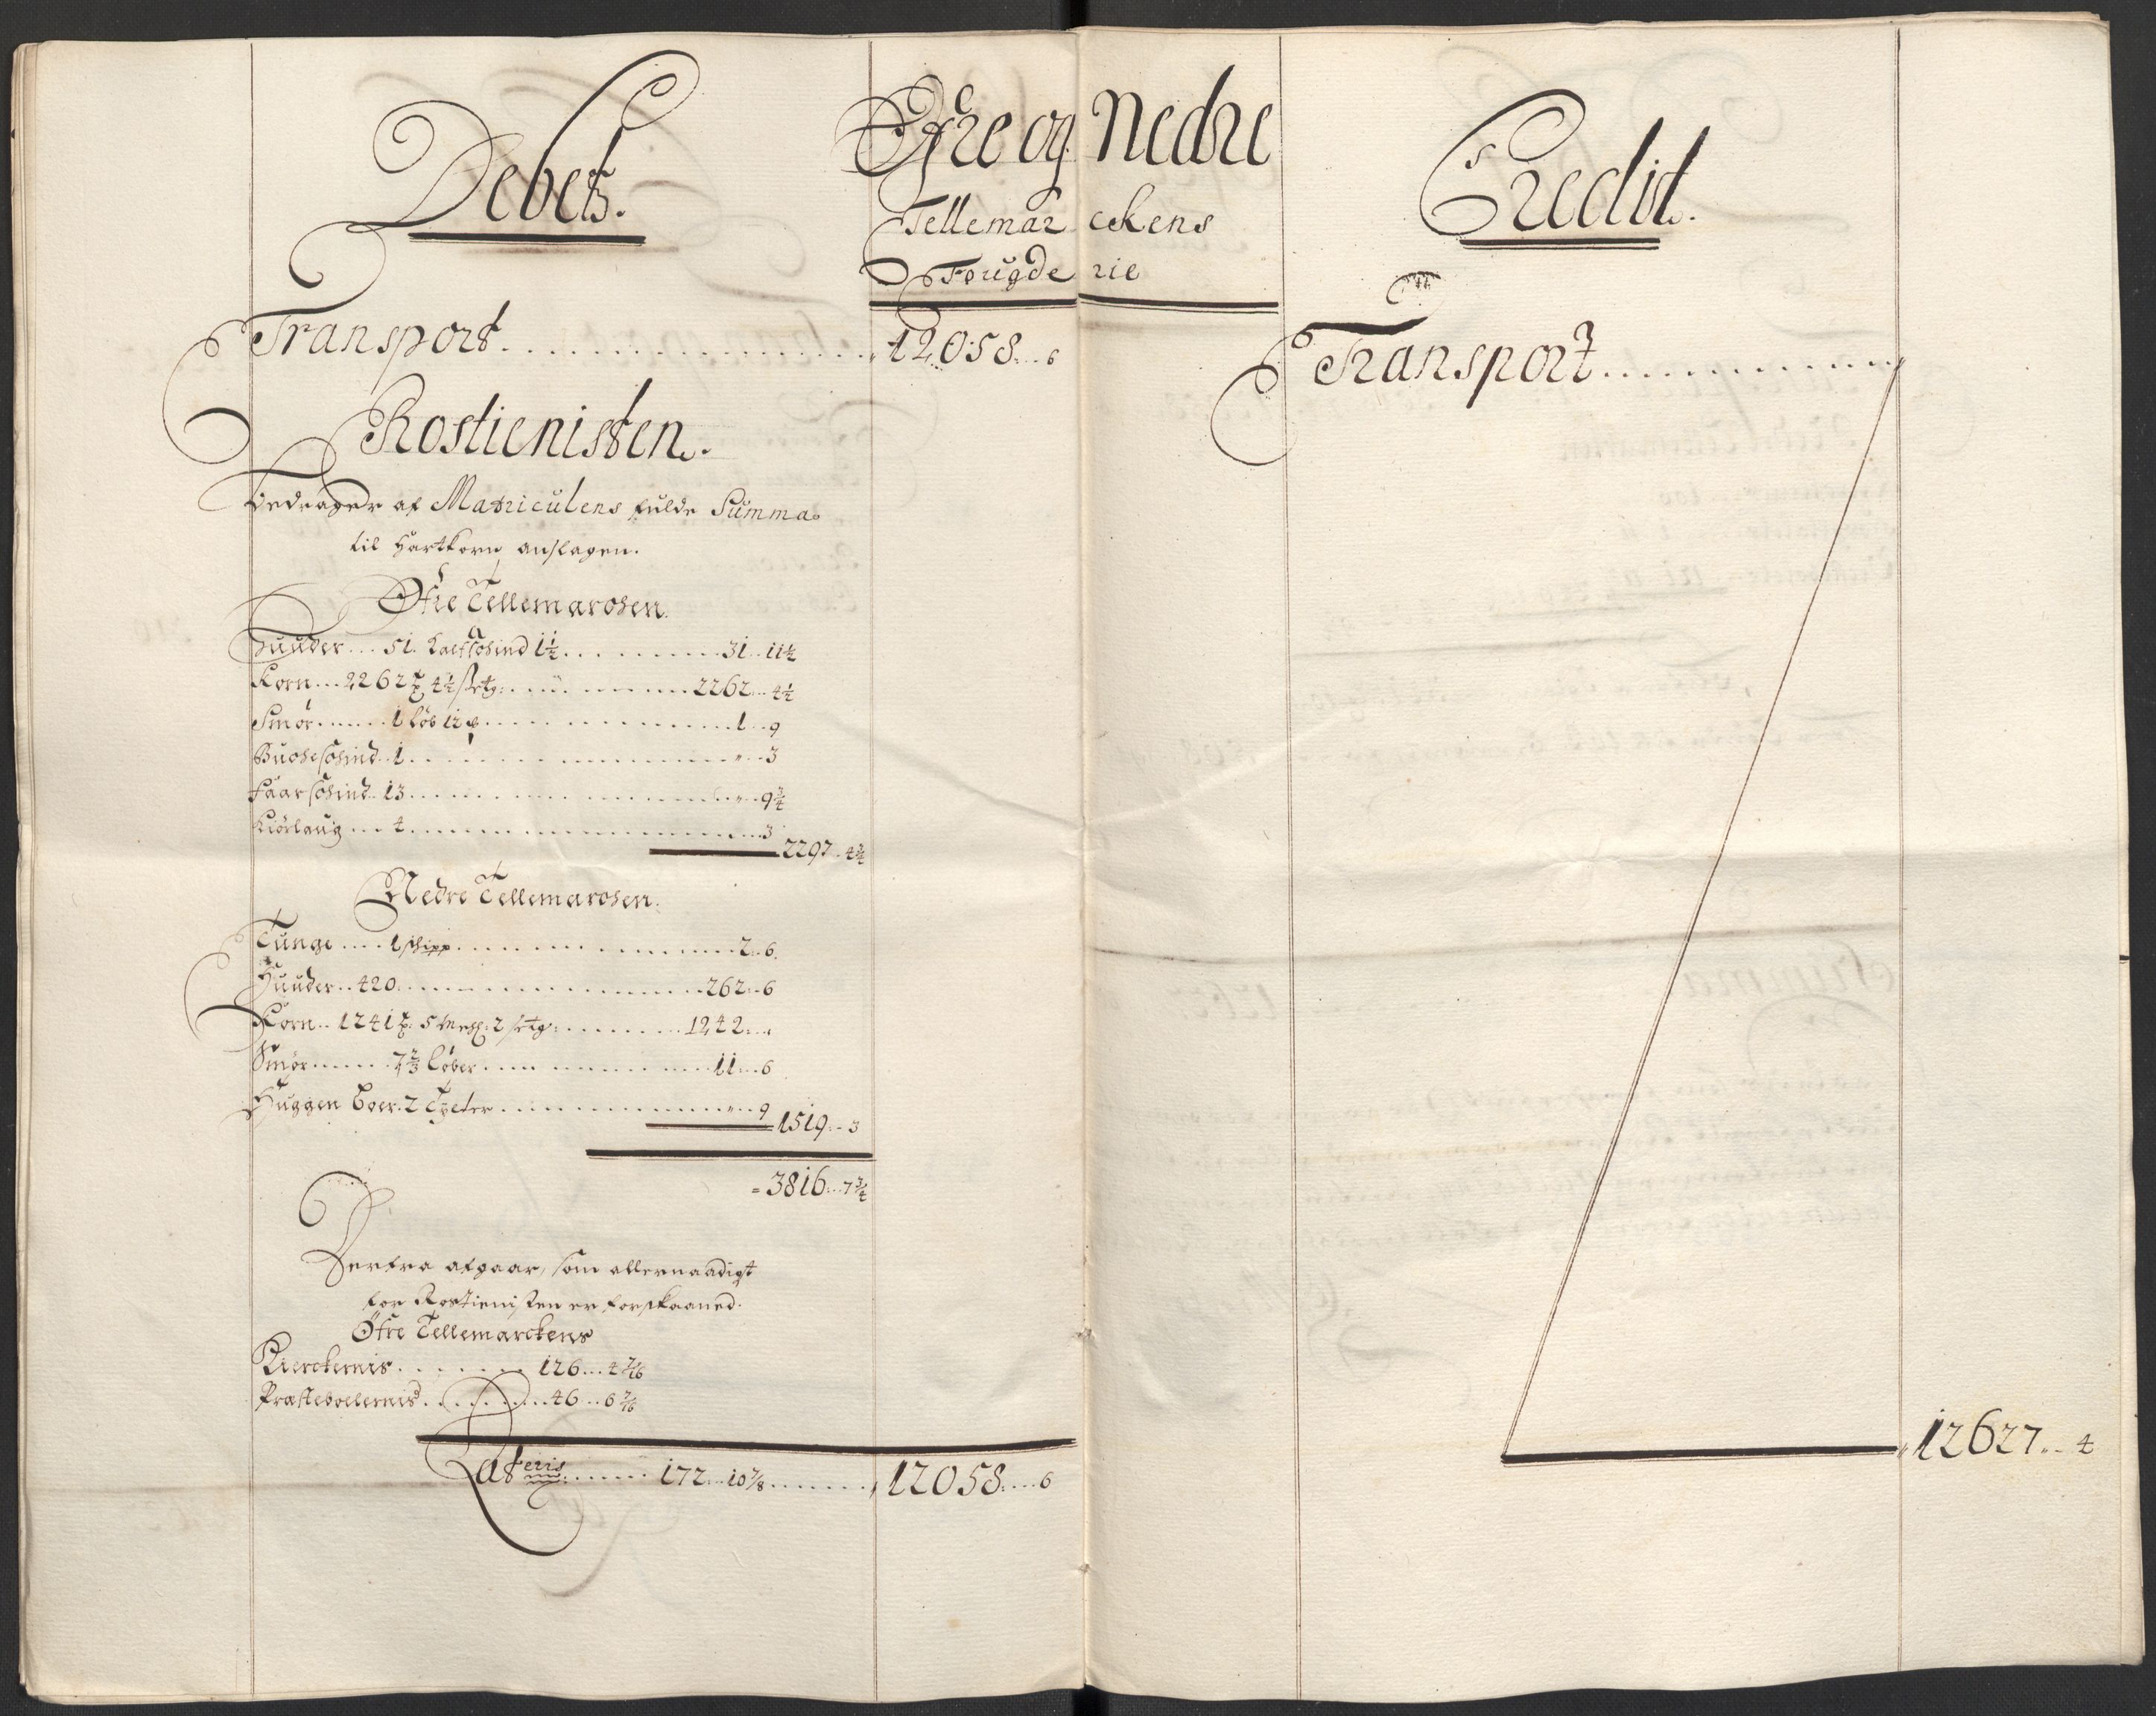 Debet.
Øfre og Nedre
Tellemarckens
Fougderie
Credit.
Transport 12058 6
Rostienisten.
Bedrager af Matriculens fulde Summa
til Hartkorn anslagen.
Øfre Tellemarchen.
Huuder 51. Kalfschind 1½ 31 11½
Korn 2262 4½ 2262 4½
Smør 1 Løb 12 1 9
Buckeschind 1 " 3
Faarschind 13 " 9¾
Kiørlaug 4 3
2297 4¾
Nedre Tellemarchen.
Tunge 1 schipp 2 6
Huuder 420 262 6
Korn 1241 5 2 1242 "
Smør 7⅔ Løber 11 6
Huggen 2 Tylter " 9
1519 3
3816 7¾
Derfra afgaar, som allernaadigst
for Rostienisten er forskaaned.
Øfre Tellemarckens
Kierckernis 126 4 7/16
Præsteboelernis 46 6 7/16
Lateris 172 10⅞ 12058 6
Transport
12627 4